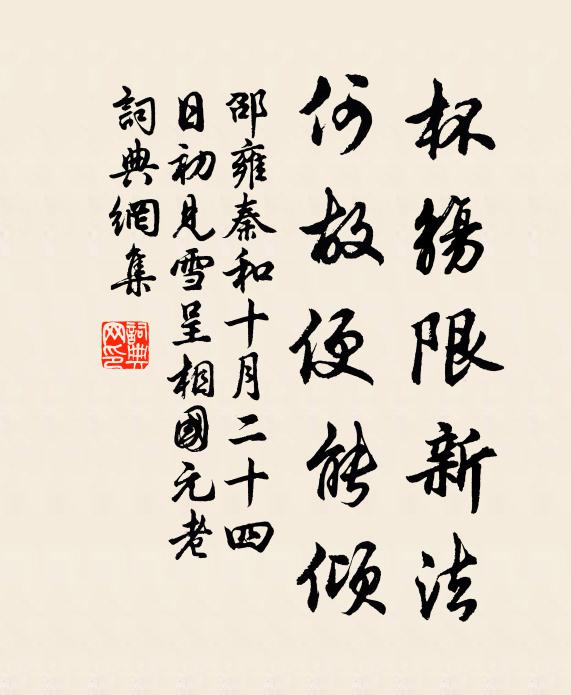 杯觴限新法
何故便能傾
邵雍秦和十月二十四
日初見雪呈相國元老
詞典網集
詞典網印